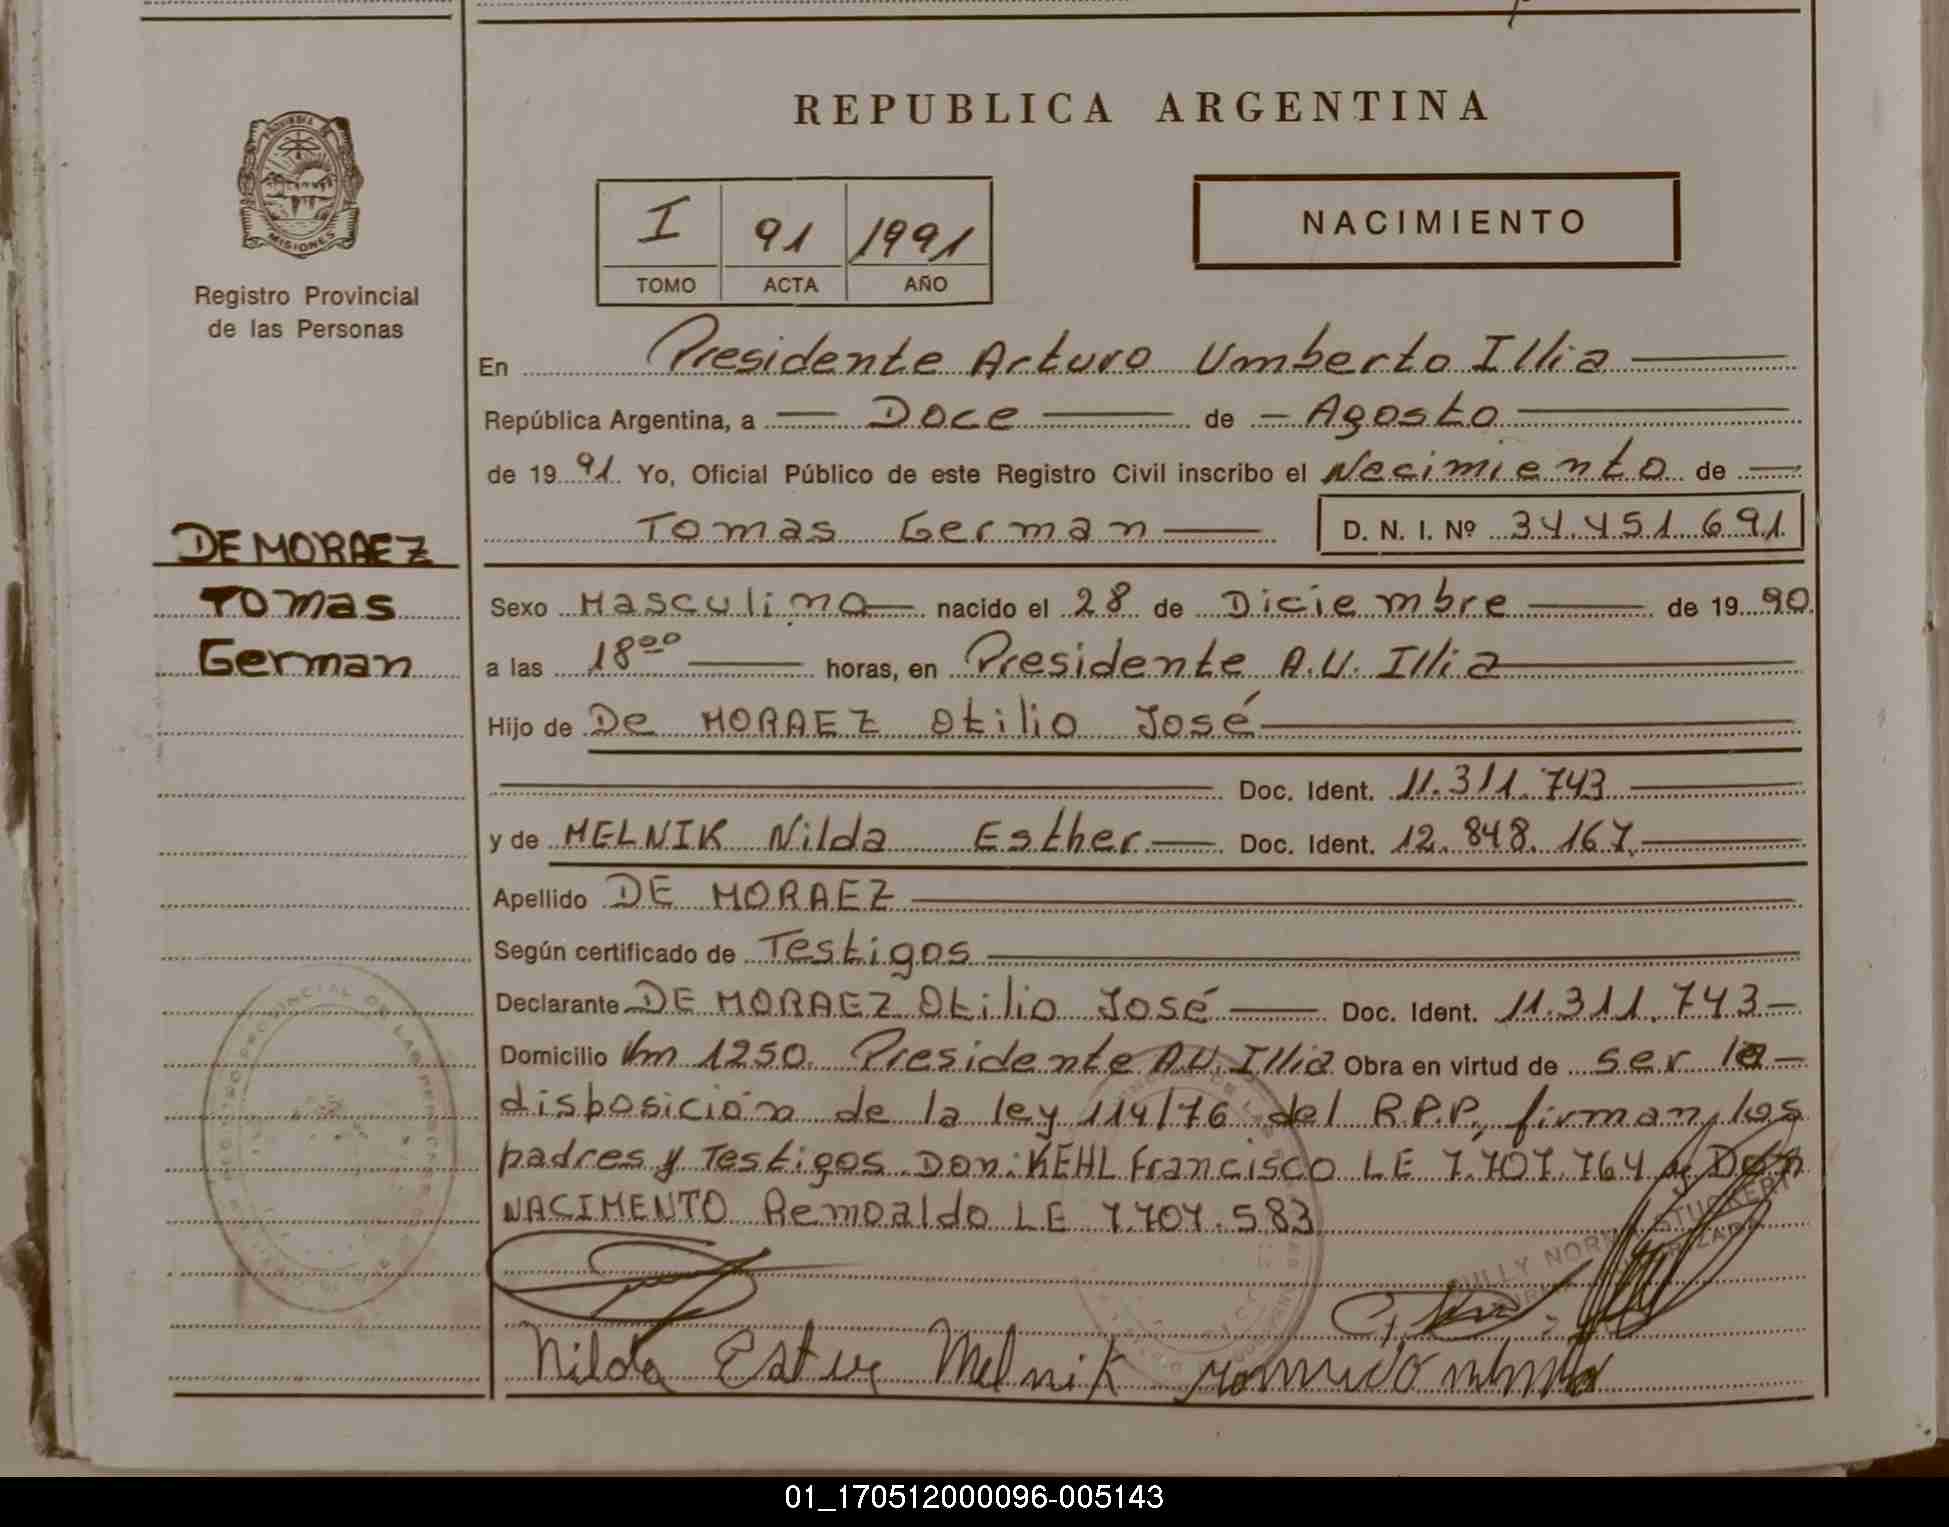 REPUBLICA ARGENTINA
PROVINCIA DE
MISIONES
Registro Provincial
de las Personas
I 91 1991
TOMO ACTA AÑO
NACIMIENTO
En Presidente Arturo Umberto Illia
República Argentina, a Doce de Agosto
de 1991 Yo, Oficial Público de este Registro Civil inscribo el Nacimiento de
Tomas German D. N. I. Nº 34.451.691
DE MORAEZ
Tomas
German
Sexo Masculino nacido el 28 de Diciembre de 1990
a las 18 00 horas, en Presidente A.U. Illia
Hijo de De MORAEZ Otilio José
Doc. Ident. 11.311.743
y de MELNIK Nilda Esther Doc. Ident. 12.848.167
Apellido DE MORAEZ
Según certificado de Testigos
Declarante DE MORAEZ Otilio José Doc. Ident. 11.311.743
Domicilio Km 1250. Presidente A.U. Illia Obra en virtud de ser la
disposición de la ley 114/76 del R.P.P, firman los
padres y Testigos Don: KEHL Francisco LE 7.707.764 y Don
NACIMENTO Remoaldo LE 7.707.583
Nilda Ester Melnik
01_170512000096-005143